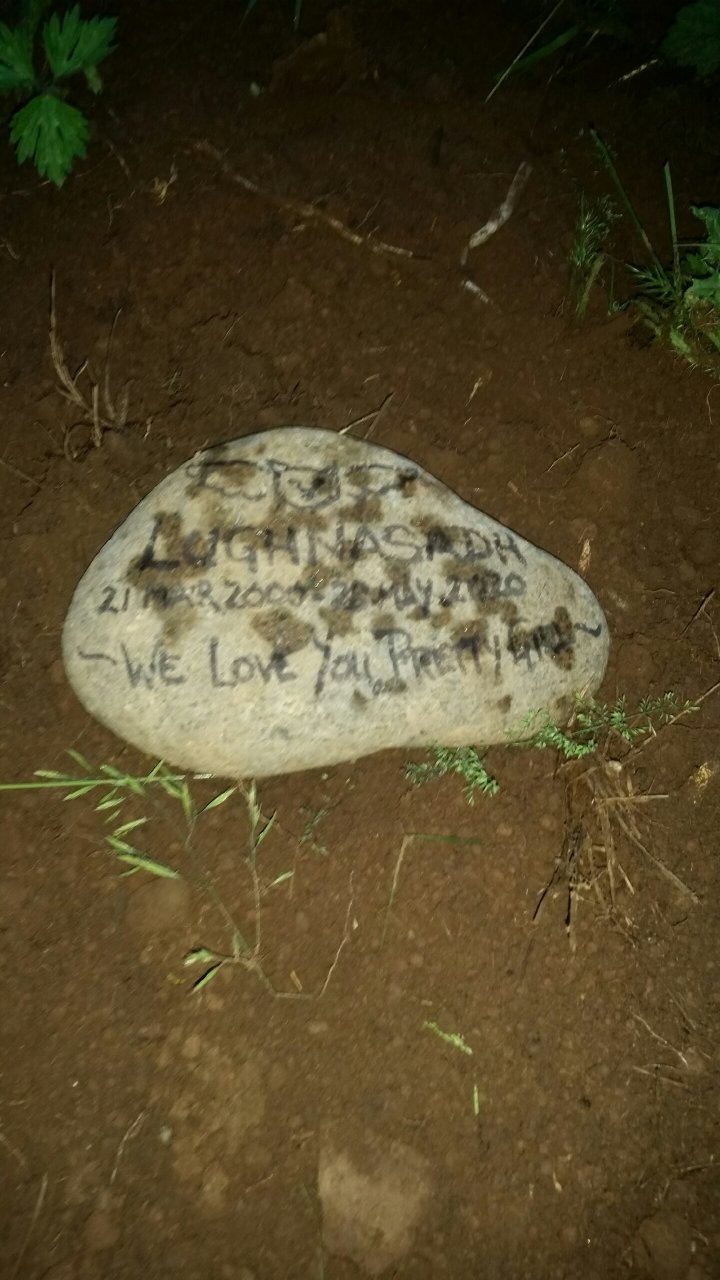 LUGHNASADH
21 MAR 2000 - 26 MAY 2020
~ WE LOVE YOU PRETTY GIRL ~